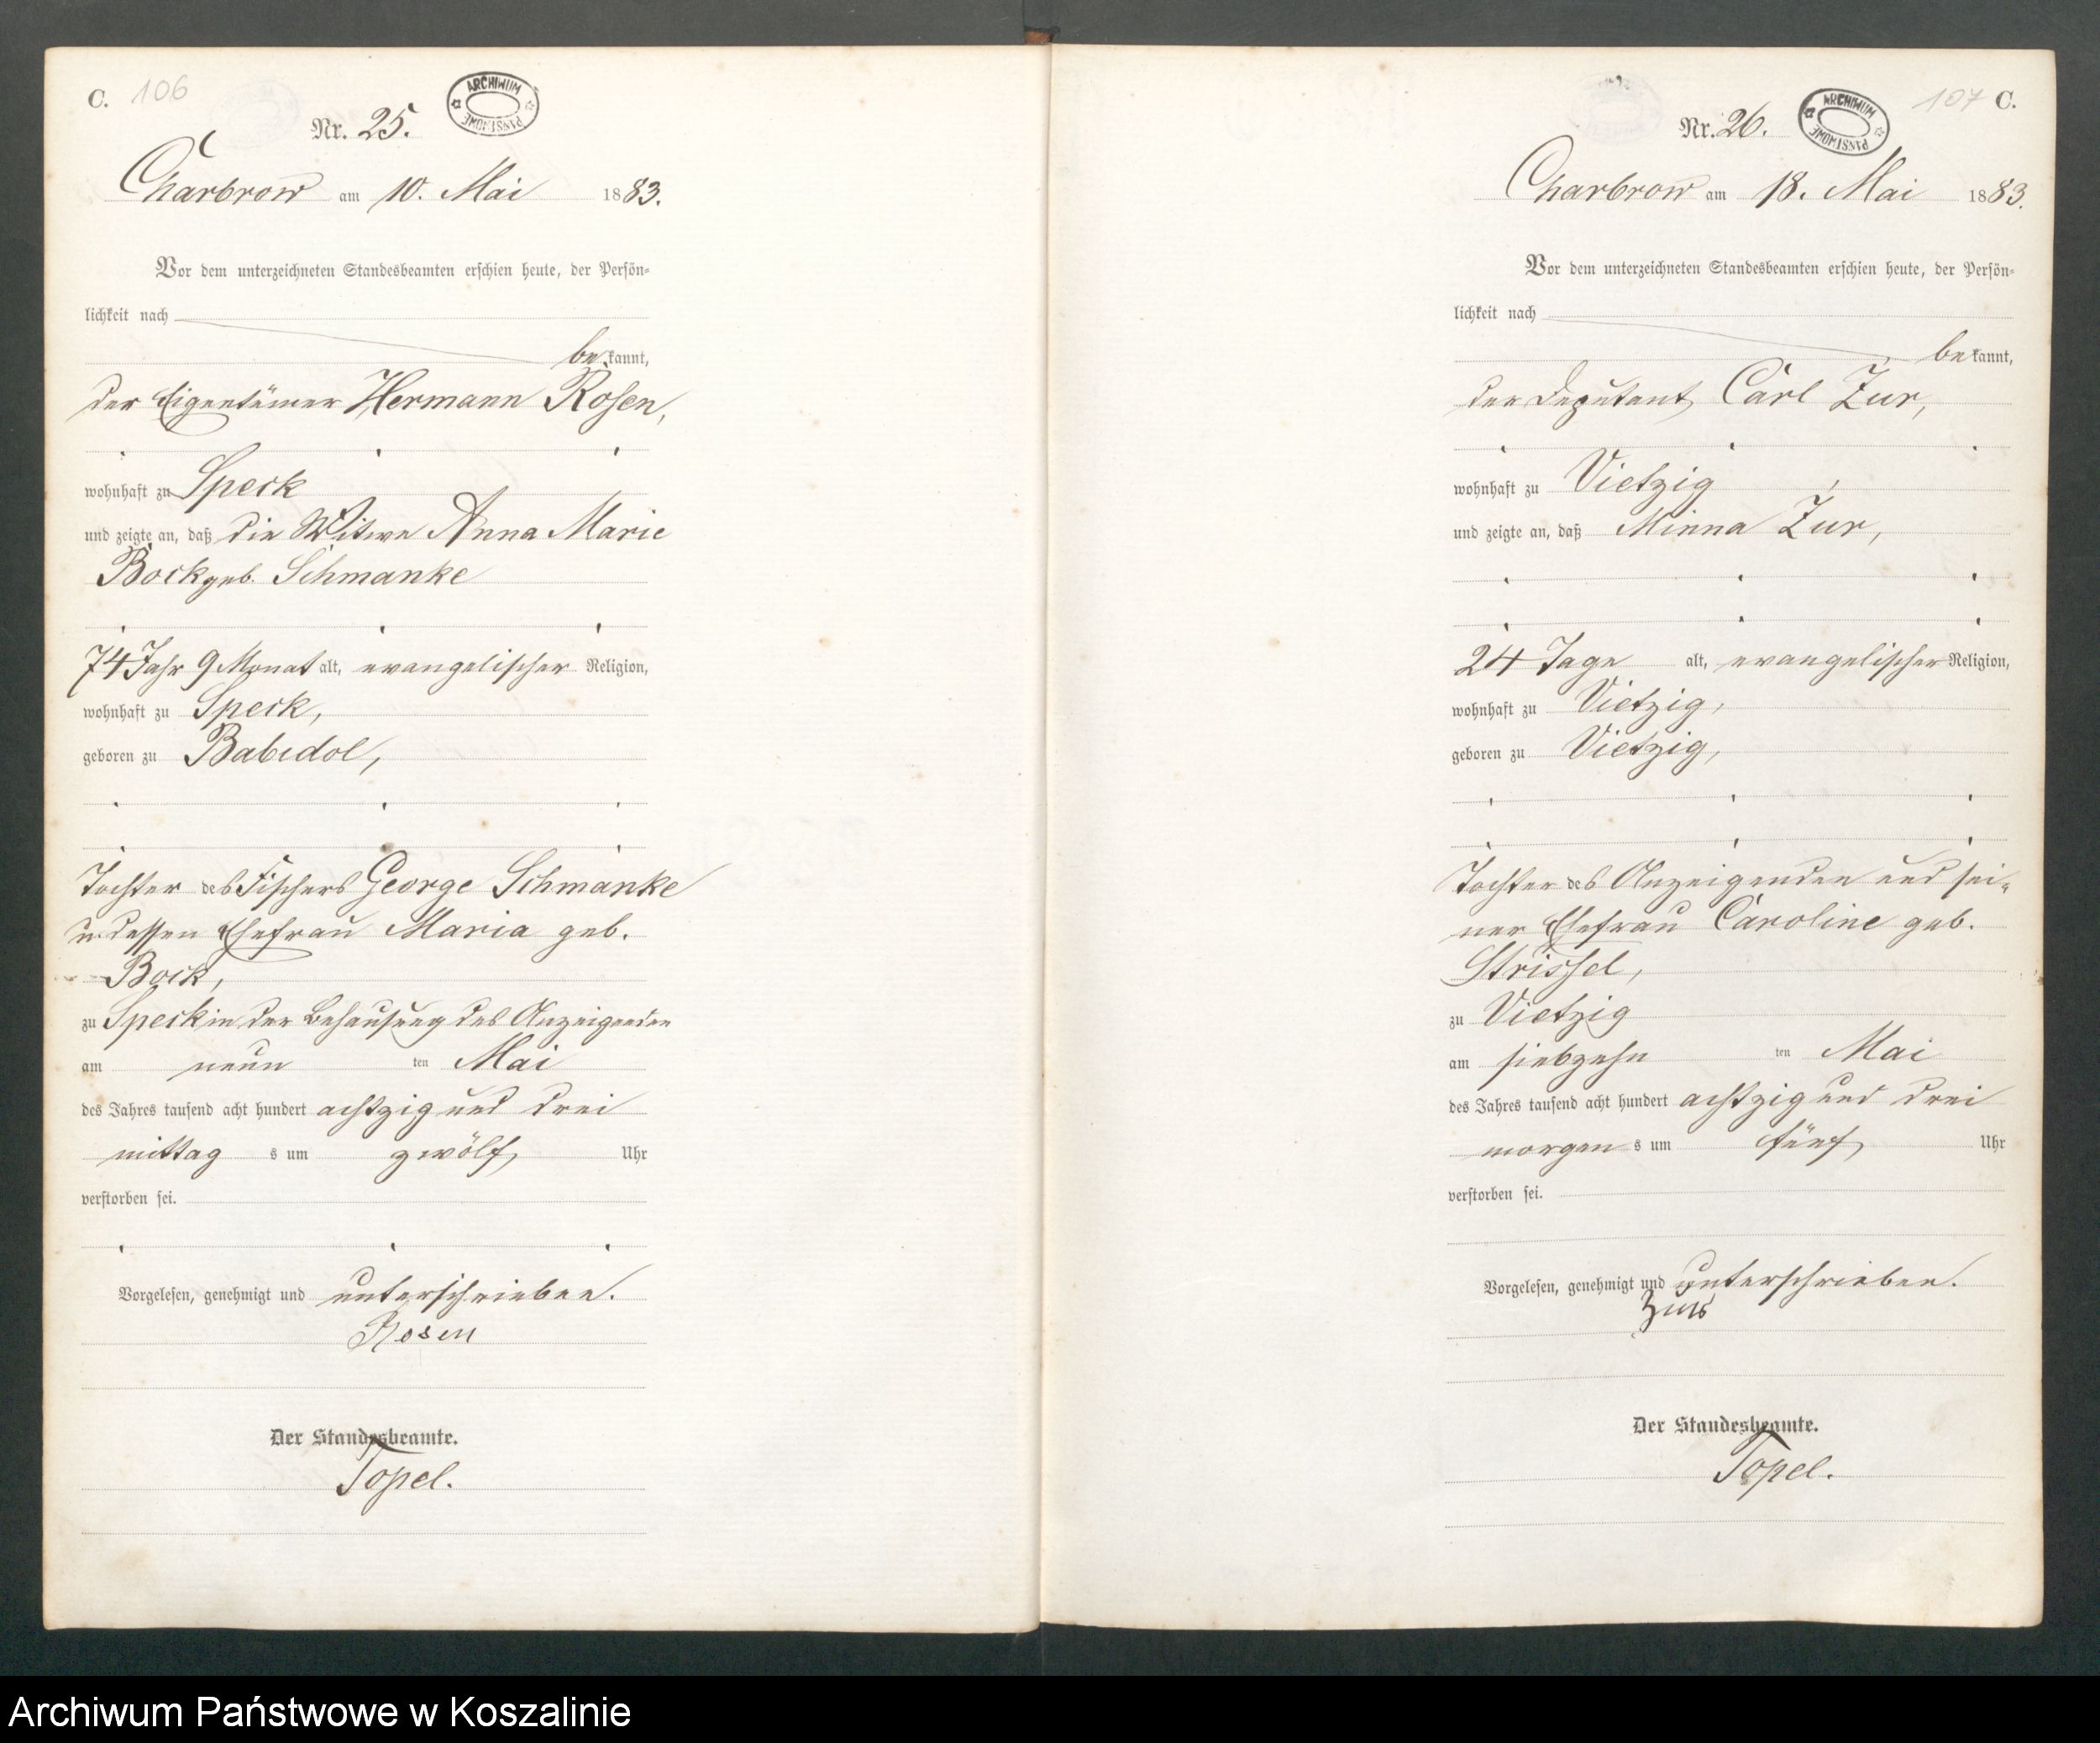 C. 106
Nr. 25.
ARCHIWUM PAŃSTWOWE
Charbrow am 10. Mai 1883.
Vor dem unterzeichneten Standesbeamten erschien heute, der Persön-
lichkeit nach
bekannt,
der Eigentümer Hermann Rosen,
wohnhaft zu Speck
und zeigte an, daß die Witwe Anna Marie
Bock geb. Schmanke
74 Jahr 9 Monat alt, evangelischer Religion,
wohnhaft zu Speck,
geboren zu Babidol,
Tochter des Fischers George Schmanke
u. dessen Ehefrau Maria geb.
Bock,
zu Speck in der Behausung des Anzeigenden
am neun ten Mai
des Jahres tausend acht hundert achtzig und drei
mittag s um zwölf Uhr
verstorben sei.
Vorgelesen, genehmigt und unterschrieben.
Rosen
Der Standesbeamte.
Topel.
107 C.
Nr. 26.
ARCHIWUM PAŃSTWOWE
Charbrow am 18. Mai 1883.
Vor dem unterzeichneten Standesbeamten erschien heute, der Persön-
lichkeit nach
bekannt,
der Deputant Carl Zur,
wohnhaft zu Vietzig,
und zeigte an, daß Minna Zur,
24 Tage alt, evangelischer Religion,
wohnhaft zu Vietzig,
geboren zu Vietzig,
Tochter des Anzeigenden und sei-
ner Ehefrau Caroline geb.
Strissel,
zu Vietzig
am siebzehn ten Mai
des Jahres tausend acht hundert achtzig und drei
morgen s um fünf Uhr
verstorben sei.
Vorgelesen, genehmigt und unterschrieben.
Der Standesbeamte.
Topel.
Archiwum Państwowe w Koszalinie